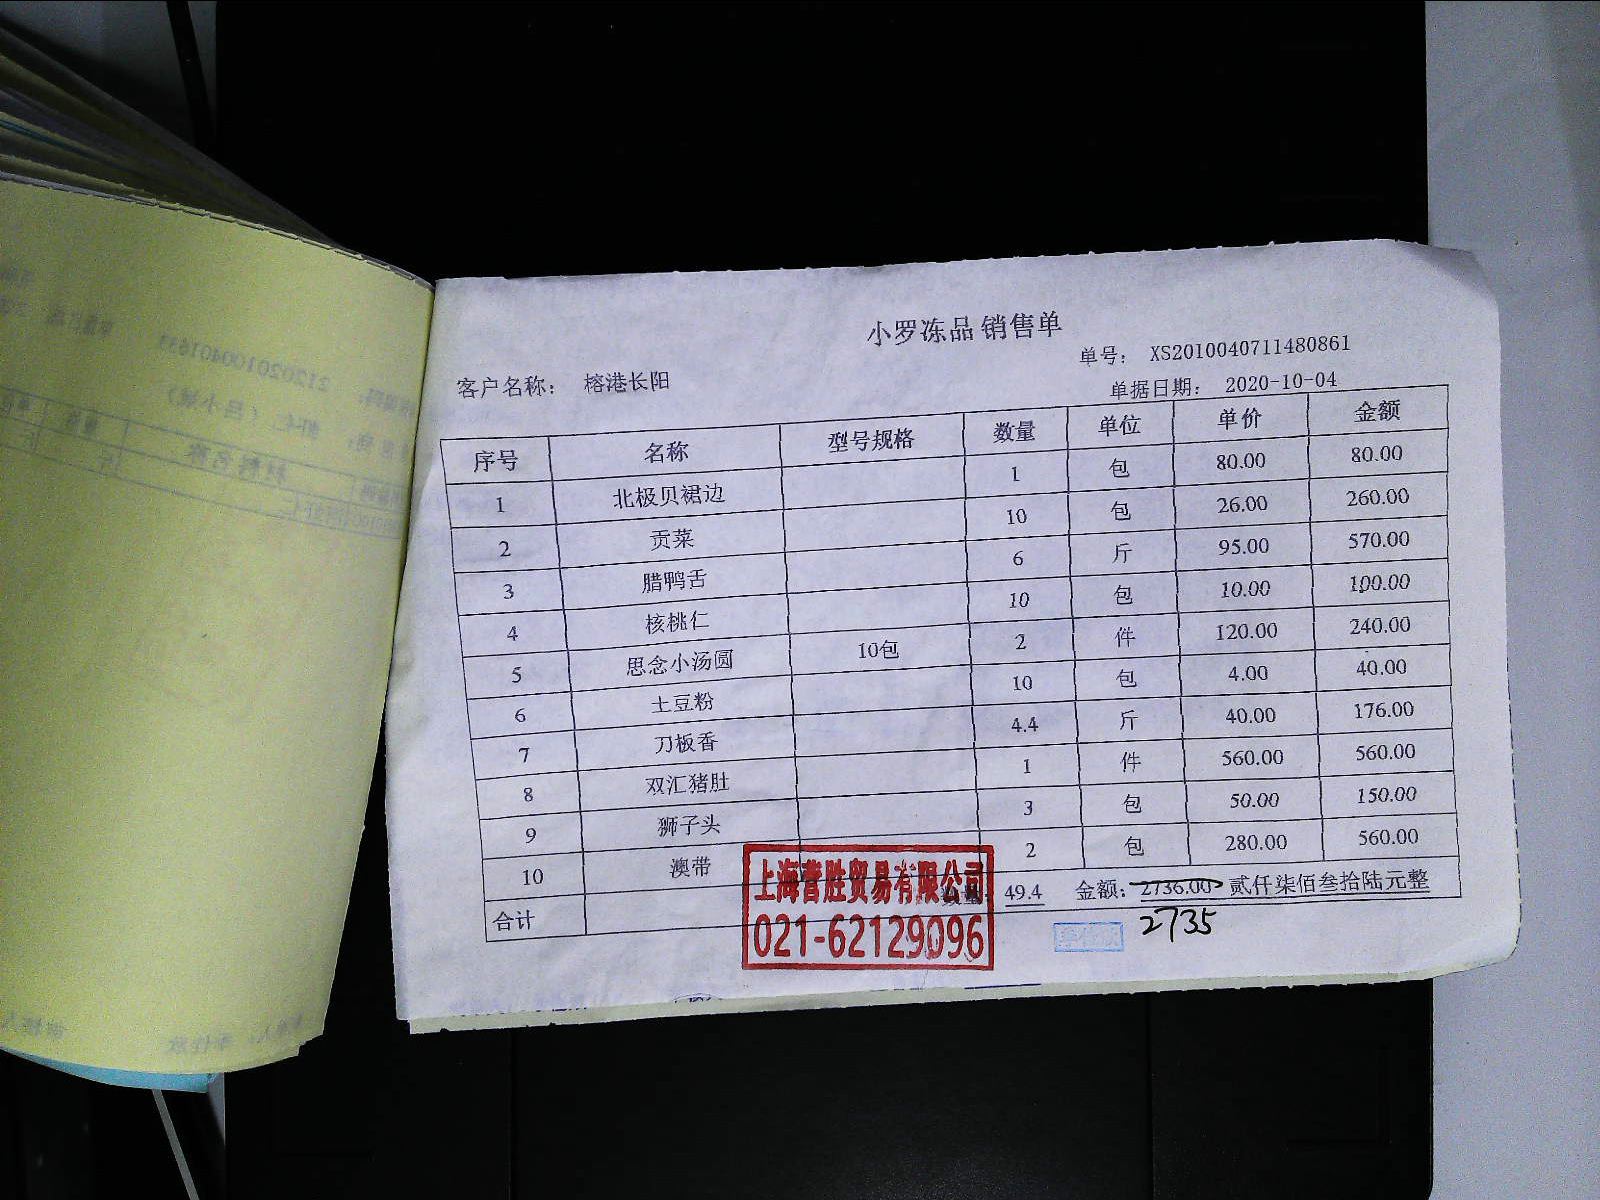 小罗冻品 销售单
单号： XS2010040711480861
客户名称： 榕港长阳
单据日期： 2020-10-04
序号 名称 型号规格 数量 单位 单价 金额
1 北极贝裙边 1 包 80.00 80.00
2 贡菜 10 包 26.00 260.00
3 腊鸭舌 6 斤 95.00 570.00
4 核桃仁 10 包 10.00 100.00
5 思念小汤圆 10包 2 件 120.00 240.00
6 土豆粉 10 包 4.00 40.00
7 刀板香 4.4 斤 40.00 176.00
8 双汇猪肚 1 件 560.00 560.00
9 狮子头 3 包 50.00 150.00
10 澳带 2 包 280.00 560.00
合计 数量: 49.4 金额: 2736.00 贰仟柒佰叁拾陆元整
2735
上海营胜贸易有限公司
021-62129096